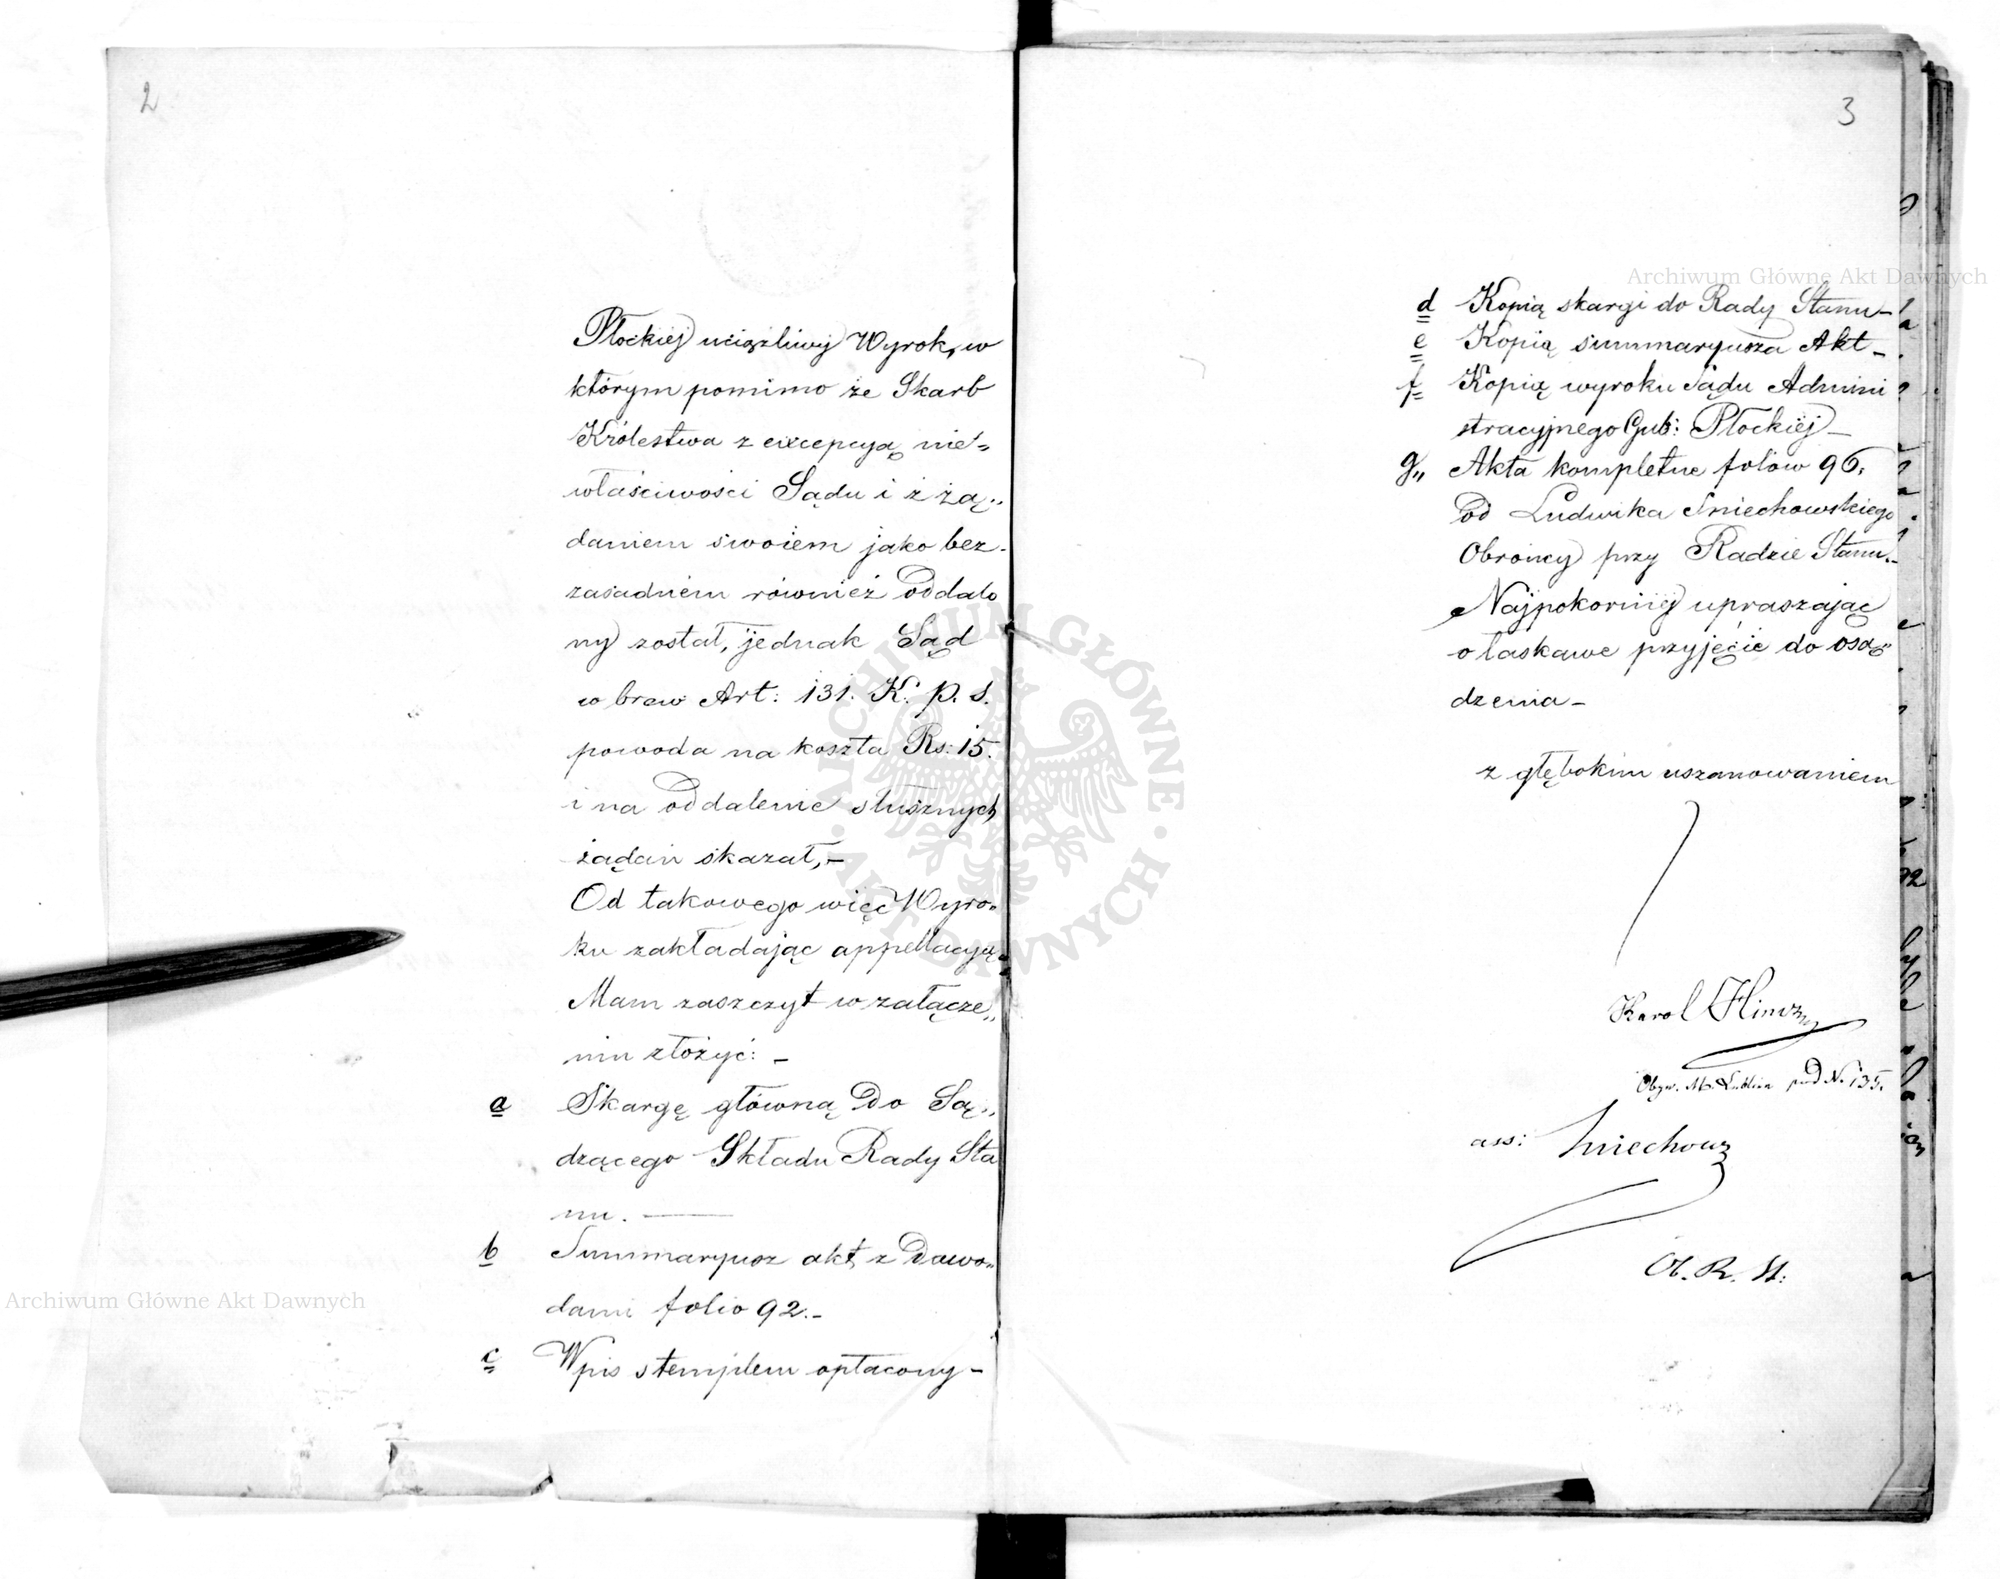 2
Płockiéj uciążliwy Wyrok, w
którym pomimo że Skarb
Królestwa z excepcyą nie„
właściwości Sądu i z żą„
daniem swoiem jako bez-
zasadnem również oddalo
ny został, jednak Sąd
w brew Art: 131. K. p. s.
powoda na koszta Rs: 15.
i na oddalenie słusznych
żądań skazał,–
Od takowego więc Wyro„
ku zakładając appellacyą
Mam zaszczyt w załącze„
niu złożyć: –
a Skargę główną Do Są„
dzącego Składu Rady Sta
nu. —
b Summaryusz akt z Dowo„
dami folio 92.–
c Wpis stemplem opłacony –
3
d Kopią skargi do Rady Stanu –
e Kopią summaryusza Akt –
f Kopią wyroku Sądu Admini
stracyjnego Gub: Płockiéj –
g„ Akta kompletne foliów 96,
od Ludwika Sniechowskiego
Obrońcy przy Radzie Stanu.–
Najpokorniéj upraszając
o łaskawe przyjęcie do osą„
dzenia –
z głębokim uszanowaniem
Karol
Obyw. M. Lublina pod N. 135.
ass:
O. R. St:
Archiwum Główne Akt Dawnych
Archiwum Główne Akt Dawnych
ARCHIWUM GŁÓWNE AKT DAWNYCH